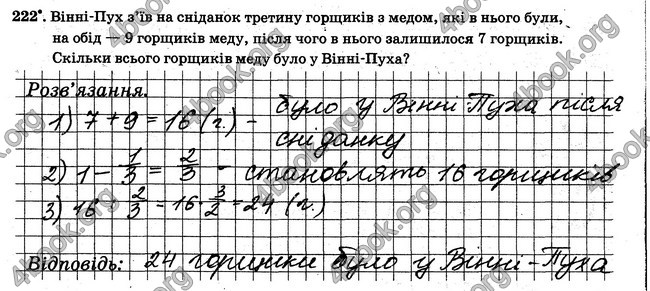 222°. Вінні-Пух з'їв на сніданок третину горщиків з медом, які в нього були,
на обід — 9 горщиків меду, після чого в нього залишилося 7 горщиків.
Скільки всього горщиків меду було у Вінні-Пуха?
Розв'язання.
1) 7 + 9 = 16 (г.) - було у Вінні-Пуха після
сніданку
2) 1 - 1/3 = 2/3 - становлять 16 горщиків
3) 16 : 2/3 = 16 · 3/2 = 24 (г.)
Відповідь: 24 горщики було у Вінні-Пуха
4book.org